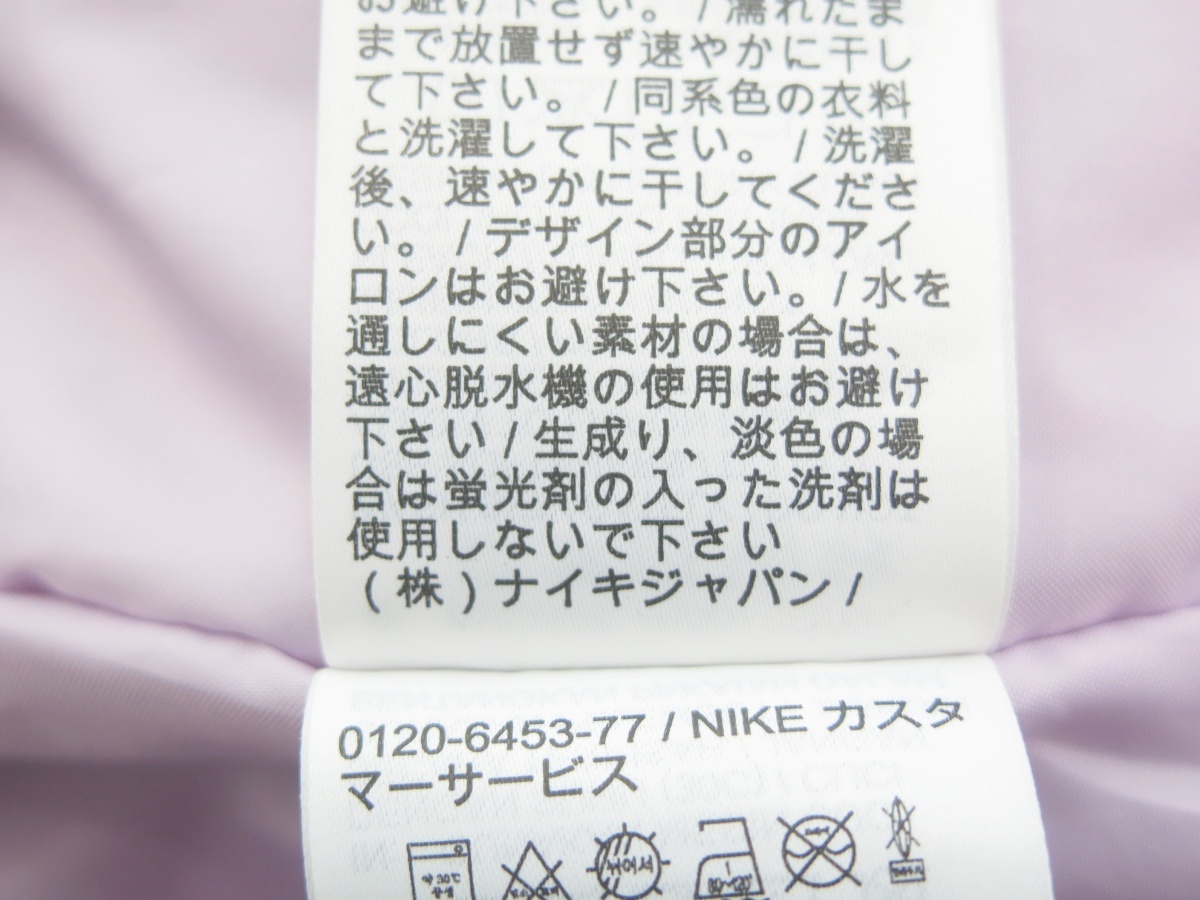 お避け下さい。/濡れたま
まで放置せず速やかに干し
て下さい。/同系色の衣料
と洗濯して下さい。/洗濯
後、速やかに干してくださ
い。/デザイン部分のアイ
ロンはお避け下さい。/水を
通しにくい素材の場合は、
遠心脱水機の使用はお避け
下さい/生成り、淡色の場
合は蛍光剤の入った洗剤は
使用しないで下さい
(株)ナイキジャパン/
0120-6453-77 / NIKE カスタ
マーサービス